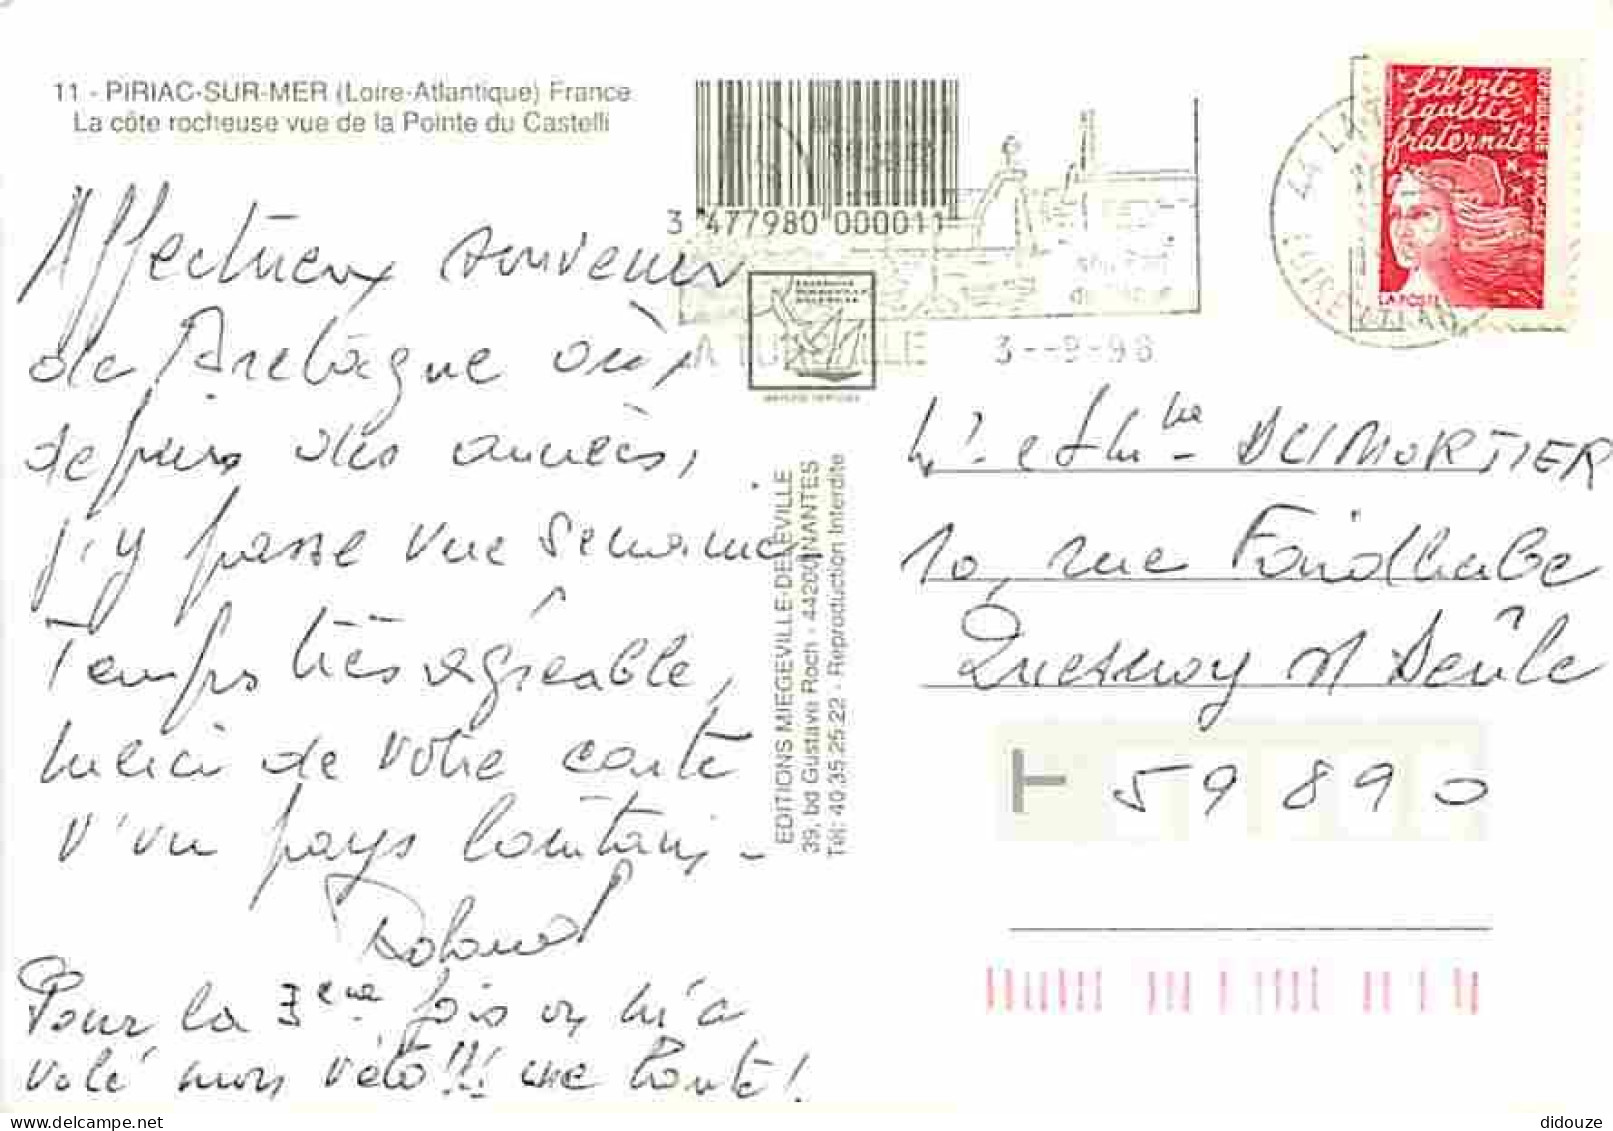 11 - PIRIAC-SUR-MER (Loire-Atlantique) France
La côte rocheuse vue de la Pointe du Castelli
3 477980 000011
LA TURBALLE
3--9-98
liberté
égalité
fraternité
LA POSTE
Affectueux souvenir
de Bretagne où
depuis des années,
j'y passe une semaine
Temps très agréable,
merci de votre carte
d'un pays lointain -
Roland
Pour la 3ème fois on m'a
volé mon vélo!!! une honte!
EDITIONS MIEGEVILLE-DENIVILLE
39, bd Gustave Roch - 44200 NANTES
Tél: 40.35.25.22 - Reproduction Interdite
Mr et Mme DUMORTIER
10, rue Faidherbe
Quesnoy s/ Deûle
59890
didouze